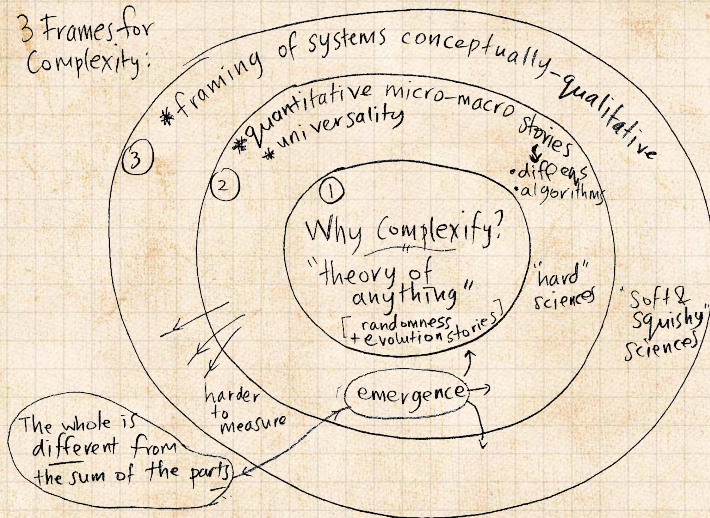 3 Frames for
Complexity:
*framing of systems conceptually-qualitative
*quantitative micro-macro stories
*universality
• diff eqs
• algorithms
3
2
1
Why Complexify?
"theory of
anything"
[randomness
+ evolution stories]
"hard"
sciences
"soft &
squishy"
sciences
harder
to
measure
emergence
The whole is
different from
the sum of the parts